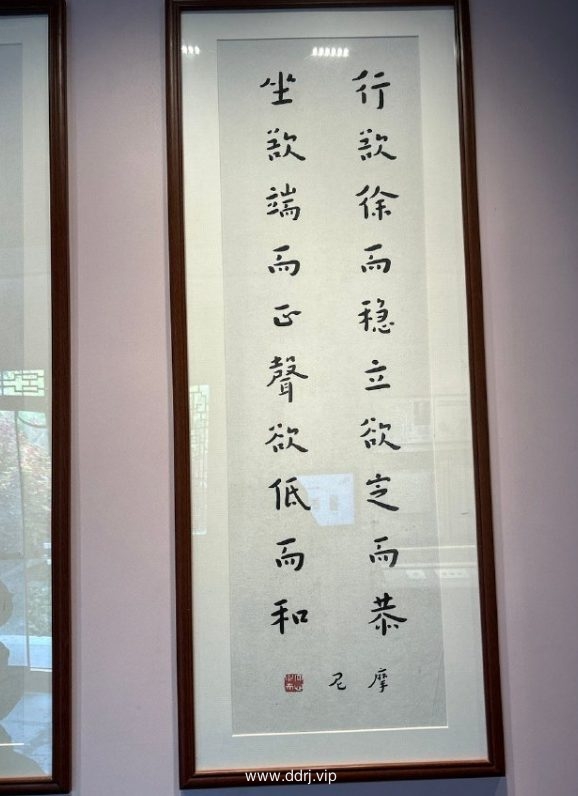 行欲徐而穏立欲定而恭
坐欲端而正聲欲低而和
摩尼
www.ddrj.vip